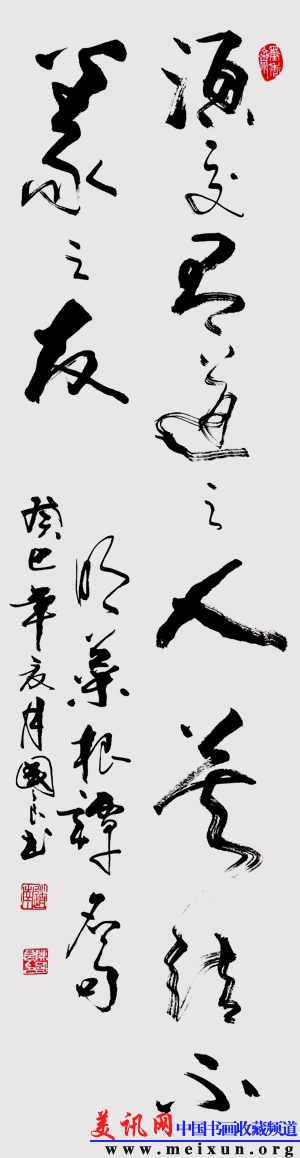 須交有道之人莫結不
義之友
明菜根譚名句
癸巳年夏月國良书
美讯网 中国书画收藏频道
www.meixun.org